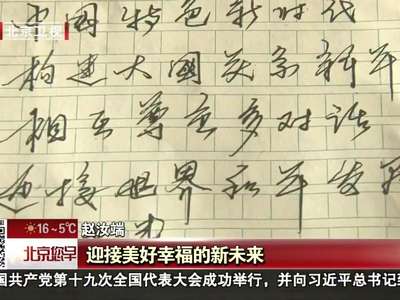 北京卫视
中国特色新时代
构建大国关系新
相互尊重多对话
迎接世界和平发
16~5℃
赵汝端
北京您早
迎接美好幸福的新未来
国共产党第十九次全国代表大会成功举行，并向习近平总书记致